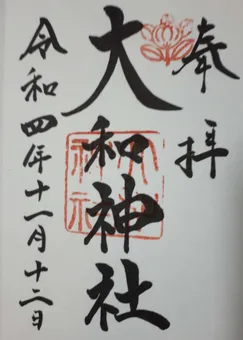 奉拝
大和神社
令和四年十一月十二日